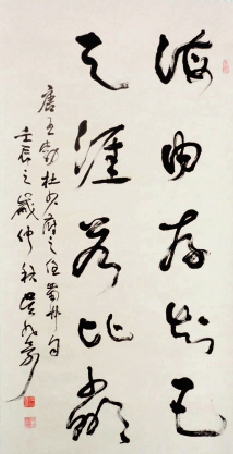 海内存知己
天涯若比邻
唐王勃杜少府之任蜀州句
壬辰之岁仲秋